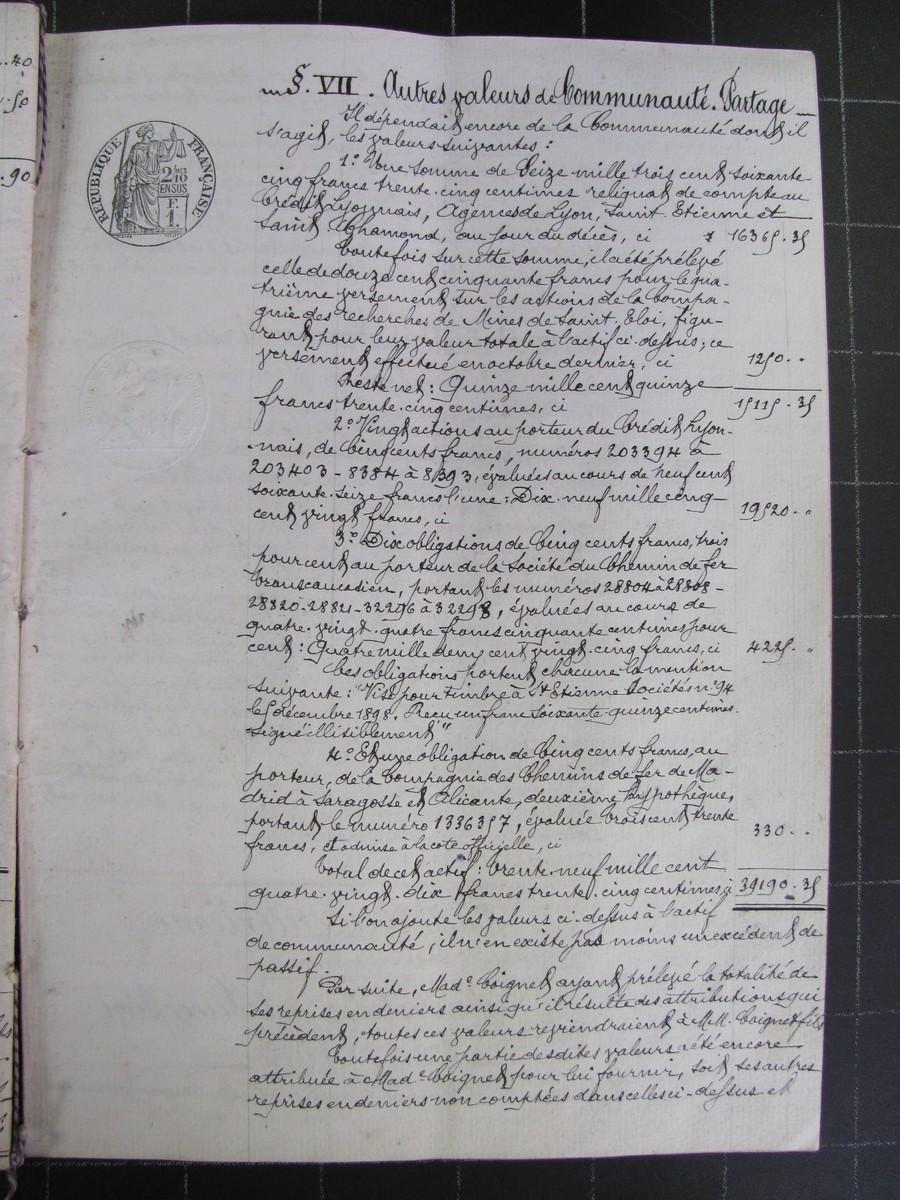 .40
.50
.90
RÉPUBLIQUE FRANÇAISE
2/10
EN SUS
F.
1.
§. VII. Autres valeurs de Communauté. Partage
Il dépendait encore de la Communauté dont il
s'agit, les valeurs suivantes :
1° Une somme de Seize mille trois cent soixante
cinq francs trente-cinq centimes reliquat de compte au
Crédit Lyonnais, Agences de Lyon, Saint-Etienne et
Saint Chamond, au jour du décès, ci 16365.35
Toutefois sur cette somme, il a été prélevé
celle de douze cent cinquante francs pour le qua-
trième versement sur les actions de la Compa-
gnie des recherches de Mines de Saint-Eloi, figu-
rant pour leur valeur totale à l'actif ci-dessus ; ce
versement effectué en octobre dernier, ci 1250..
Reste net : Quinze mille cent quinze
francs trente-cinq centimes, ci 15115.35
2° Vingt actions au porteur du Crédit Lyon-
nais, de Cinq cents francs, numéros 203394 à
203403 - 8384 à 8393, évaluées au cours de Neuf cent
soixante-seize francs l'une : Dix-neuf mille cinq-
cent vingt francs, ci 19520..
3° Dix obligations de Cinq cents francs, trois
pour cent au porteur de la Société du Chemin de fer
transcaucasien, portant les numéros 28804 à 28808 -
28320-28821-32296 à 32298, évaluées au cours de
quatre-vingt-quatre francs cinquante centimes pour
cent : Quatre mille deux cent vingt-cinq francs, ci 4225..
Ces obligations portent chacune la mention
suivante : "Visé pour timbre à St Etienne Sociétés n° 94
le 5 décembre 1898. Reçu un franc soixante-quinze centimes.
Signé illisiblement"
4° Et une obligation de Cinq cents francs, au
porteur, de la Compagnie des Chemins de fer de Ma-
drid à Saragosse et Alicante, deuxième hypothèque,
portant le numéro 1336357, évaluée Trois cent trente
francs, et admise à la cote officielle, ci 330..
Total de cet actif : Trente-neuf mille cent
quatre-vingt-dix francs trente-cinq centimes, ci 39190.35
Si l'on ajoute les valeurs ci-dessus à l'actif
de communauté, il n'en existe pas moins un excédent de
passif.
Par suite, Made Coignet ayant prélevé la totalité de
ses reprises en deniers ainsi qu'il résulte des attributions qui
précèdent, toutes ces valeurs reviendraient à M.M. Coignet fils
Toutefois une partie desdites valeurs a été encore
attribuée à Made Coignet pour lui fournir, soit ses autres
reprises en deniers non comptées dans celles ci-dessus et